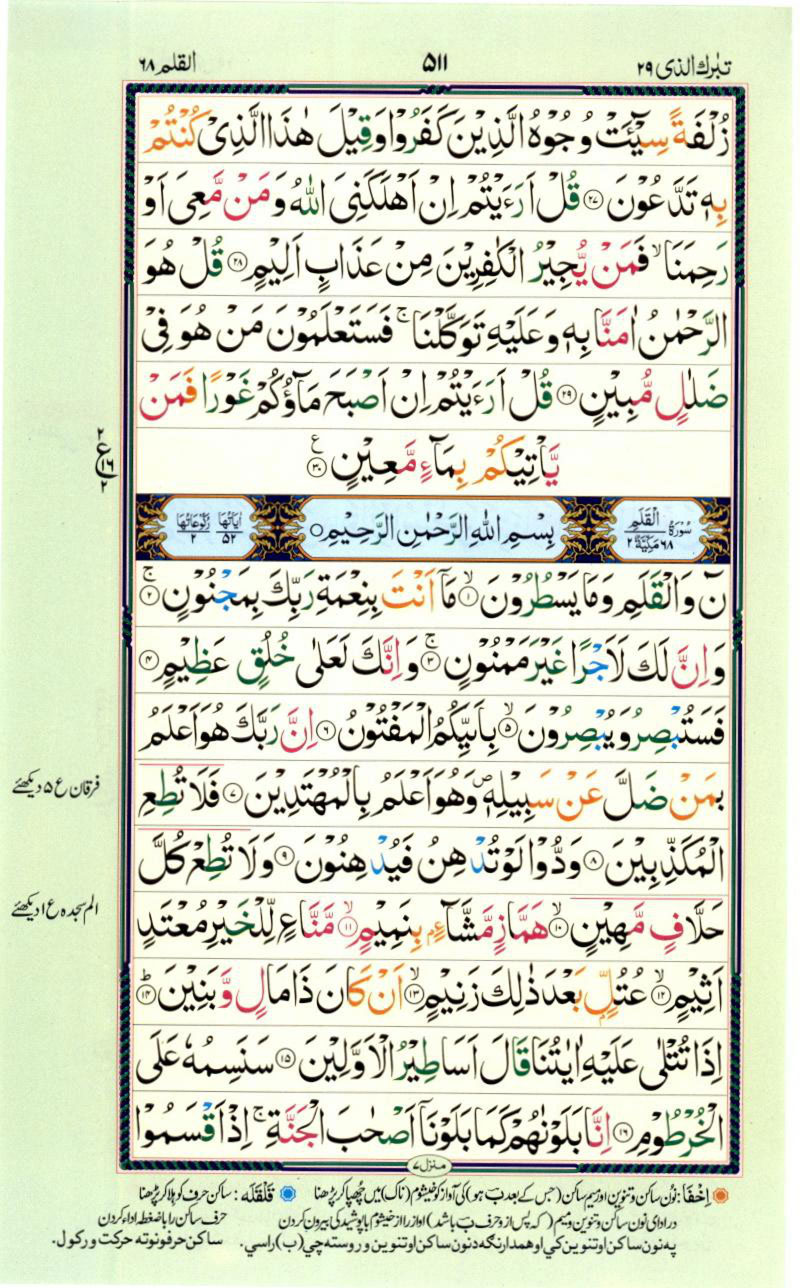 تبٰرك الذی ۲۹
۵۱۱
القلم ۶۸
زُلْفَةً سِیْٓـَٔتْ وُجُوْهُ الَّذِیْنَ كَفَرُوْا وَقِیْلَ هٰذَا الَّذِیْ كُنْتُمْ
بِهٖ تَدَّعُوْنَ ۲۷ قُلْ اَرَءَیْتُمْ اِنْ اَهْلَكَنِیَ اللّٰهُ وَمَنْ مَّعِیَ اَوْ
رَحِمَنَا ۙ فَمَنْ یُّجِیْرُ الْكٰفِرِیْنَ مِنْ عَذَابٍ اَلِیْمٍ ۲۸ قُلْ هُوَ
الرَّحْمٰنُ اٰمَنَّا بِهٖ وَعَلَیْهِ تَوَكَّلْنَا ۚ فَسَتَعْلَمُوْنَ مَنْ هُوَ فِیْ
ضَلٰلٍ مُّبِیْنٍ ۲۹ قُلْ اَرَءَیْتُمْ اِنْ اَصْبَحَ مَآؤُكُمْ غَوْرًا فَمَنْ
یَّاْتِیْكُمْ بِمَآءٍ مَّعِیْنٍ ۳۰ ع
۲ ع ۱۶ ۲
سُوْرَةُ الْقَلَمِ ۶۸ مَكِّیَّةٌ ۲ بِسْمِ اللّٰهِ الرَّحْمٰنِ الرَّحِیْمِ اٰیَاتُهَا ۵۲ رُكُوْعَاتُهَا ۲
نٓ وَالْقَلَمِ وَمَا یَسْطُرُوْنَ ۙ ۱ مَآ اَنْتَ بِنِعْمَةِ رَبِّكَ بِمَجْنُوْنٍ ۚ ۲
وَاِنَّ لَكَ لَاَجْرًا غَیْرَ مَمْنُوْنٍ ۚ ۳ وَاِنَّكَ لَعَلٰی خُلُقٍ عَظِیْمٍ ۴
فَسَتُبْصِرُ وَیُبْصِرُوْنَ ۙ ۵ بِاَیِّىكُمُ الْمَفْتُوْنُ ۶ اِنَّ رَبَّكَ هُوَ اَعْلَمُ
بِمَنْ ضَلَّ عَنْ سَبِیْلِهٖ ۪ وَهُوَ اَعْلَمُ بِالْمُهْتَدِیْنَ ۷ فَلَا تُطِعِ
فرقان ع ۵ دیکھئے
الْمُكَذِّبِیْنَ ۸ وَدُّوْا لَوْ تُدْهِنُ فَیُدْهِنُوْنَ ۹ وَلَا تُطِعْ كُلَّ
حَلَّافٍ مَّهِیْنٍ ۙ ۱۰ هَمَّازٍ مَّشَّآءٍۭ بِنَمِیْمٍ ۙ ۱۱ مَّنَّاعٍ لِّلْخَیْرِ مُعْتَدٍ
الم سجدہ ع ۱ دیکھئے
اَثِیْمٍ ۙ ۱۲ عُتُلٍّۭ بَعْدَ ذٰلِكَ زَنِیْمٍ ۙ ۱۳ اَنْ كَانَ ذَا مَالٍ وَّبَنِیْنَ ؕ ۱۴
اِذَا تُتْلٰی عَلَیْهِ اٰیٰتُنَا قَالَ اَسَاطِیْرُ الْاَوَّلِیْنَ ۱۵ سَنَسِمُهٗ عَلَی
الْخُرْطُوْمِ ۱۶ اِنَّا بَلَوْنٰهُمْ كَمَا بَلَوْنَآ اَصْحٰبَ الْجَنَّةِ ۚ اِذْ اَقْسَمُوْا
منزل ۷
اِخْفَا: نُون ساکن و تنوین اور میم ساکن (جس کے بعد ب ہو) کی آواز کو خیشوم (ناک) میں چُھپا کر پڑھنا قَلقَلَه: ساکن حرف کو ہلا کر پڑھنا
در ادای نون ساکن و تنوین و میم (که پس از و حرف ب باشد) اواز را از خیشوم با پوشیدگی بیرون کردن حرف ساکن را با ضغطه اداء کردن
په نون ساکن او تنوین کي او همدارنګه د نون ساکن او تنوین و روسته چي (ب) راسي. ساکن حرفو نوته حرکت ورکول.